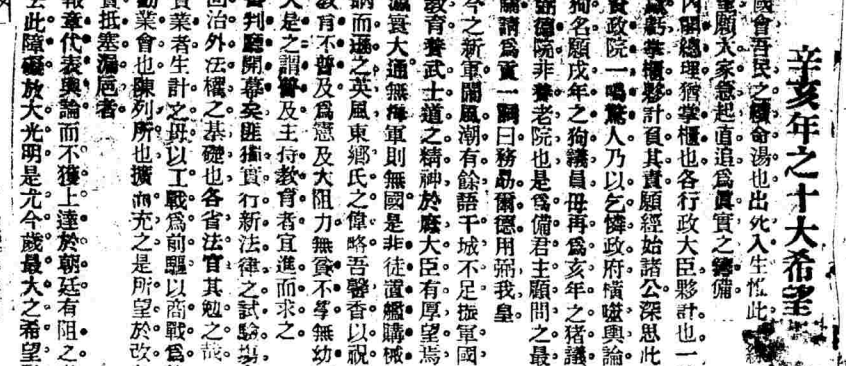 辛亥年之十大希望
國會吾民之續命湯也出死入生惟此
願大家急起直追爲眞實之籌備
內閣總理猶掌櫃也各行政大臣夥計也一
虧掌櫃夥計負其責願經始諸公深思此
資政院一鳴驚人乃以乞憐政府橫噬輿論
狗名願戌年之狗議員毋再爲亥年之猪議
弼德院非養老院也是爲備君主顧問之最
請爲貢一詞曰務勗爾德用弼我皇
今之新軍鬧風潮有餘語干城不足振軍國
教育養武士道之精神於廕大臣有厚望焉
瀛寰大通無海軍則無國是非徒置艦購械
訥而遜之英風東鄉氏之偉略吾馨香以祝
教育不普及爲憲及大阻力無貧不學無幼
是之謂普及主持教育者宜進而求之
審判廳開幕矣匪猶實行新法律之試驗塲
回治外法權之基礎也各省法官其勉之哉
實業者生計之母以工戰爲前驅以商戰爲
勸業會也陳列所也擴而充之是所望於改
抵塞漏巵者
報章代表輿論而不獲上達於朝廷有阻之
去此障礙放大光明是尤今歲最大之希望